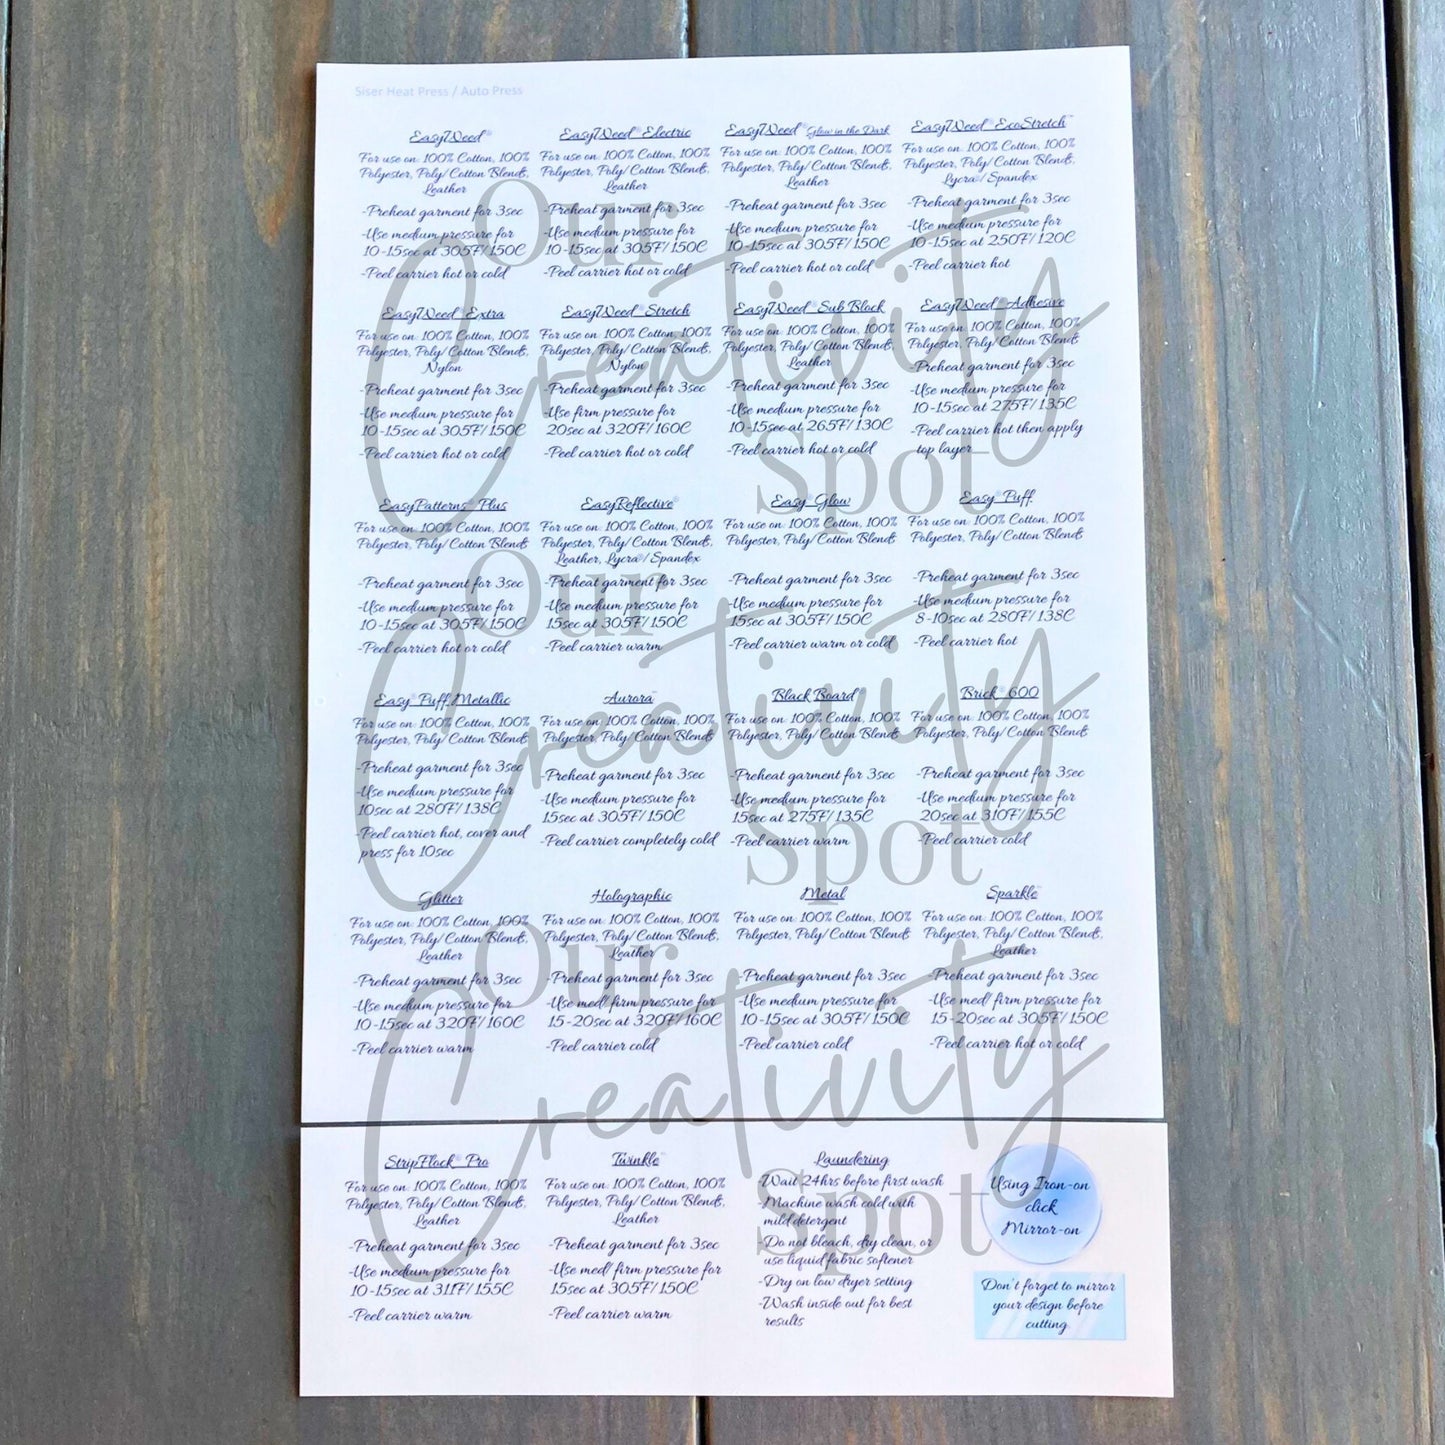 Siser Heat Press / Auto Press
EasyWeed®
For use on: 100% Cotton, 100%
Polyester, Poly/Cotton Blends,
Leather
-Preheat garment for 3sec
-Use medium pressure for
10-15sec at 305F/150C
-Peel carrier hot or cold
EasyWeed® Electric
For use on: 100% Cotton, 100%
Polyester, Poly/Cotton Blends,
Leather
-Preheat garment for 3sec
-Use medium pressure for
10-15sec at 305F/150C
-Peel carrier hot or cold
EasyWeed® Glow in the Dark
For use on: 100% Cotton, 100%
Polyester, Poly/Cotton Blends,
Leather
-Preheat garment for 3sec
-Use medium pressure for
10-15sec at 305F/150C
-Peel carrier hot or cold
EasyWeed® EcoStretch™
For use on: 100% Cotton, 100%
Polyester, Poly/Cotton Blends,
Lycra®/Spandex
-Preheat garment for 3sec
-Use medium pressure for
10-15sec at 250F/120C
-Peel carrier hot
EasyWeed® Extra
For use on: 100% Cotton, 100%
Polyester, Poly/Cotton Blends,
Nylon
-Preheat garment for 3sec
-Use medium pressure for
10-15sec at 305F/150C
-Peel carrier hot or cold
EasyWeed® Stretch
For use on: 100% Cotton, 100%
Polyester, Poly/Cotton Blends,
Nylon
-Preheat garment for 3sec
-Use firm pressure for
20sec at 320F/160C
-Peel carrier hot or cold
EasyWeed® Sub Block
For use on: 100% Cotton, 100%
Polyester, Poly/Cotton Blends,
Leather
-Preheat garment for 3sec
-Use medium pressure for
10-15sec at 265F/130C
-Peel carrier hot or cold
EasyWeed® Adhesive
For use on: 100% Cotton, 100%
Polyester, Poly/Cotton Blends
-Preheat garment for 3sec
-Use medium pressure for
10-15sec at 275F/135C
-Peel carrier hot then apply
top layer
EasyPatterns® Plus
For use on: 100% Cotton, 100%
Polyester, Poly/Cotton Blends
-Preheat garment for 3sec
-Use medium pressure for
10-15sec at 305F/150C
-Peel carrier hot or cold
EasyReflective®
For use on: 100% Cotton, 100%
Polyester, Poly/Cotton Blends,
Leather, Lycra®/Spandex
-Preheat garment for 3sec
-Use medium pressure for
15sec at 305F/150C
-Peel carrier warm
Easy® Glow
For use on: 100% Cotton, 100%
Polyester, Poly/Cotton Blends
-Preheat garment for 3sec
-Use medium pressure for
15sec at 305F/150C
-Peel carrier warm or cold
Easy® Puff
For use on: 100% Cotton, 100%
Polyester, Poly/Cotton Blends
-Preheat garment for 3sec
-Use medium pressure for
8-10sec at 280F/138C
-Peel carrier hot
Easy® Puff Metallic
For use on: 100% Cotton, 100%
Polyester, Poly/Cotton Blends
-Preheat garment for 3sec
-Use medium pressure for
10sec at 280F/138C
-Peel carrier hot, cover and
press for 10sec
Aurora™
For use on: 100% Cotton, 100%
Polyester, Poly/Cotton Blends
-Preheat garment for 3sec
-Use medium pressure for
15sec at 305F/150C
-Peel carrier completely cold
Black Board™
For use on: 100% Cotton, 100%
Polyester, Poly/Cotton Blends
-Preheat garment for 3sec
-Use medium pressure for
15sec at 275F/135C
-Peel carrier warm
Brick® 600
For use on: 100% Cotton, 100%
Polyester, Poly/Cotton Blends
-Preheat garment for 3sec
-Use medium pressure for
20sec at 310F/155C
-Peel carrier cold
Glitter
For use on: 100% Cotton, 100%
Polyester, Poly/Cotton Blends,
Leather
-Preheat garment for 3sec
-Use medium pressure for
10-15sec at 320F/160C
-Peel carrier warm
Holographic
For use on: 100% Cotton, 100%
Polyester, Poly/Cotton Blends,
Leather
-Preheat garment for 3sec
-Use med/firm pressure for
15-20sec at 320F/160C
-Peel carrier cold
Metal
For use on: 100% Cotton, 100%
Polyester, Poly/Cotton Blends
-Preheat garment for 3sec
-Use medium pressure for
10-15sec at 305F/150C
-Peel carrier cold
Sparkle™
For use on: 100% Cotton, 100%
Polyester, Poly/Cotton Blends,
Leather
-Preheat garment for 3sec
-Use med/firm pressure for
15-20sec at 305F/150C
-Peel carrier hot or cold
StripFlock® Pro
For use on: 100% Cotton, 100%
Polyester, Poly/Cotton Blends,
Leather
-Preheat garment for 3sec
-Use medium pressure for
10-15sec at 311F/155C
-Peel carrier warm
Twinkle™
For use on: 100% Cotton, 100%
Polyester, Poly/Cotton Blends,
Leather
-Preheat garment for 3sec
-Use med/firm pressure for
15sec at 305F/150C
-Peel carrier warm
Laundering
-Wait 24hrs before first wash
-Machine wash cold with
mild detergent
-Do not bleach, dry clean, or
use liquid fabric softener
-Dry on low dryer setting
-Wash inside out for best
results
Using Iron-on
click
Mirror-on
Don't forget to mirror
your design before
cutting
Our
Creativity
Spot
Our
Creativity
Spot
Our
Creativity
Spot